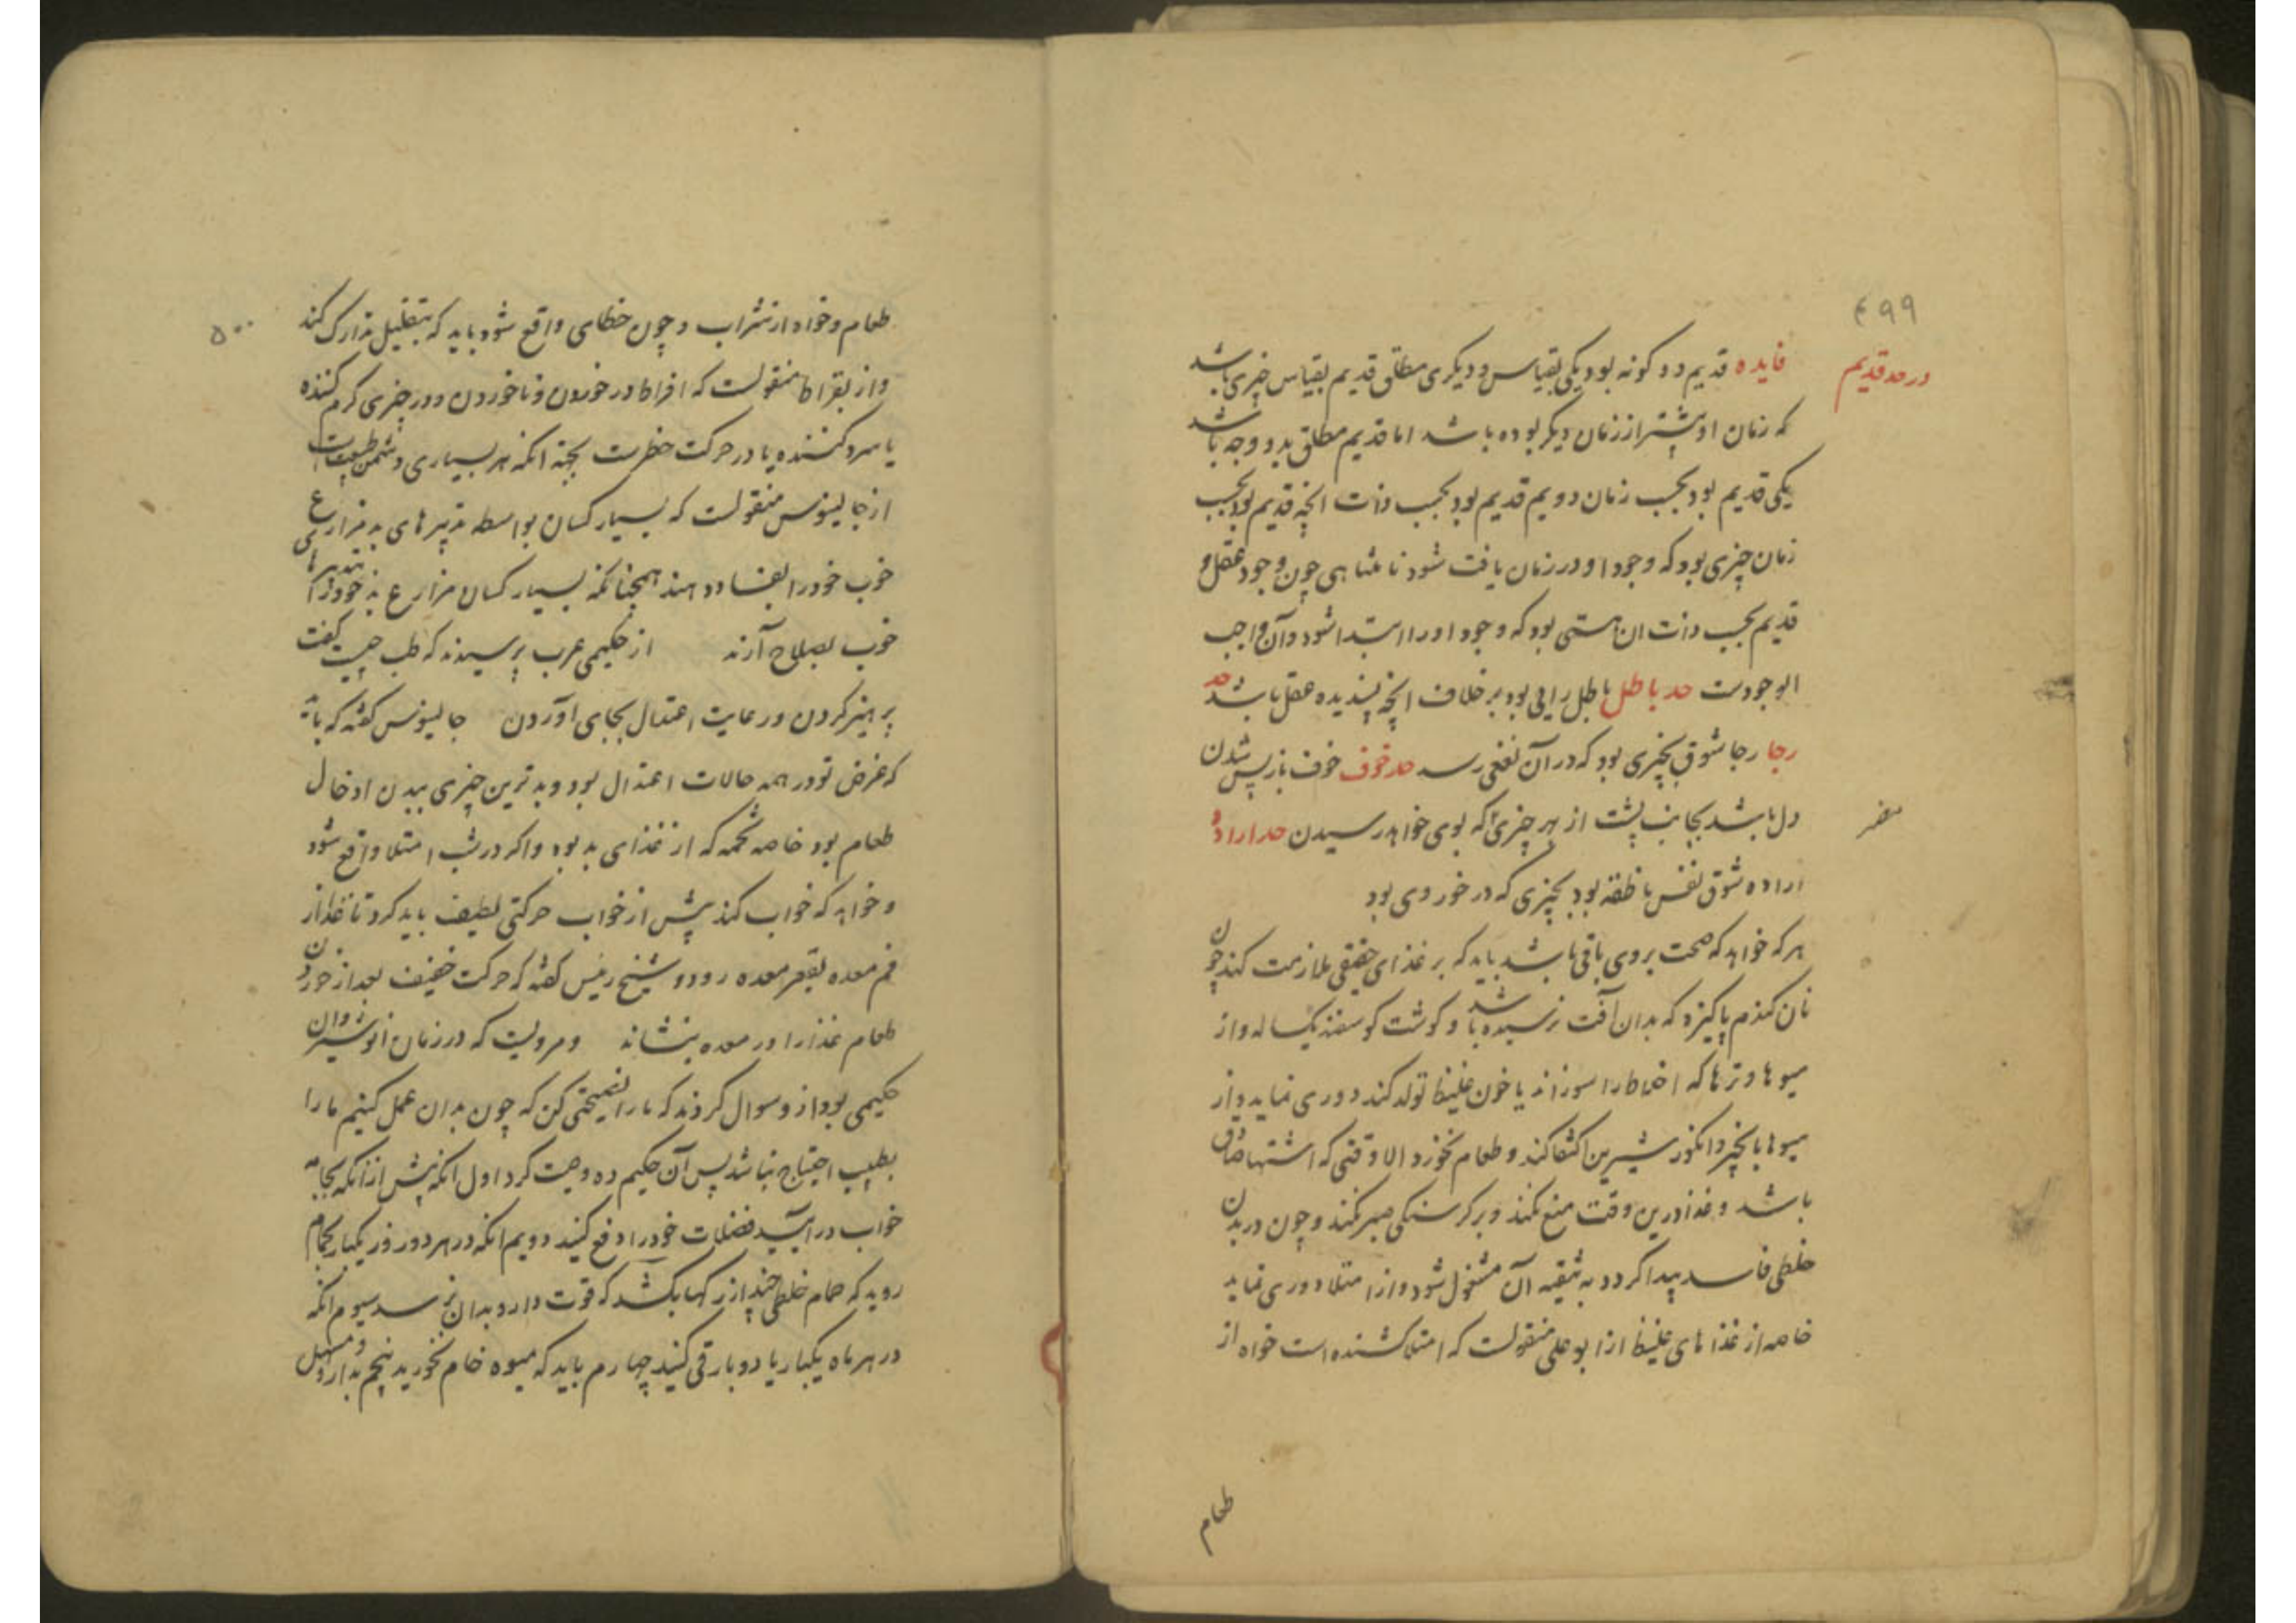 ۴۹۹
در حد قدیم
فایده قدیم دو کونه بود یکی بقیاس و دیکری مطلق قدیم بقیاس چیزی باشد
که زمان او پیشتر از زمان دیکر بوده باشد اما قدیم مطلق بدو وجه باشد
یکی قدیم بود بحسب زمان دویم قدیم بود بحسب ذات انچه قدیم بود بحسب
زمان چیزی بود که وجود او در زمان یافت شود نامتناهی چون وجود عقل و
قدیم بحسب ذات ان هستی بود که وجود او را ابتدا شود و آن واجب
الوجودست حد باطل باطل رایی بود بر خلاف انچه پسندیده عقل باشد حد
رجا رجا شوق بچیزی بود که در آن نفعی رسد حد خوف خوف باز پس شدن
دل باشد بجانب پشت از هر چیزی که بوی خواهد رسیدن حد اراده
مضر
اراده شوق نفس ناطقه بود بچیزی که در خور وی بود
هر که خواهد که صحت بر وی باقی باشد باید که بر غذای حقیقی ملازمت کند چون
نان کندم پاکیزه که بدان آفت نرسیده باشد و کوشت کوسفند یکساله و از
میوها و ترها که اخلاط را سوزاند یا خون غلیظ تولد کند دوری نماید و از
میوها بانجیر و انکور شیرین اکتفا کند و طعام نخورد الا وقتی که اشتها صادق
باشد و غذا درین وقت منع نکند و بر کرسنکی صبر نکند و چون در بدن
خلطی فاسد پیدا کردد به تنقیه آن مشغول شود و از امتلا دوری نماید
خاصه از غذاهای غلیظ از ابو علی منقولست که امتلا کشنده است خواه از
طعام
۵۰۰
طعام و خواه از شراب و چون خطای واقع شود باید که بتقلیل تدارک کند
و از بقراط منقولست که افراط در خوردن و ناخوردن و در چیزی کرم کننده
یا سرد کننده یا در حرکت خطرست بجهة انکه هر بسیاری دشمن طبیعت است
از جالینوس منقولست که بسیار کسان بواسطه تدبیرهای بد مزارعی
خوب خود را بفساد دهند همچنانکه بسیار کسان مزارع بد خود را بتدبیرهای
خوب بصلاح آرند از حکیمی عرب پرسیدند که طب چیست کفت
پرهیز کردن و رعایت اعتدال بجای آوردن جالینوس کفته که باید
که غرض تو در همه حالات اعتدال بود و بدترین چیزی ببدن ادخال
طعام بود خاصه تخمه که از غذای بد بود و اکر در شب امتلا واقع شود
و خواهد که خواب کند پیش از خواب حرکتی لطیف باید کرد تا غذا از
فم معده بقعر معده رود و شیخ رئیس کفته که حرکت خفیف بعد از خوردن
طعام غذا را در معده بنشاند و مرویست که در زمان انوشیروان
حکیمی بود از و سوال کردند که ما را نصیحتی کن که چون بدان عمل کنیم ما را
بطبیب احتیاج نباشد پس آن حکیم ده وصیت کرد اول انکه پیش از انکه بجامه
خواب درآیید فضلات خود را دفع کنید دویم انکه در هر دو روز یکبار بحمام
روید که حمام خلطی چند از رکها بکشد که قوت دارو بدان نرسد سیوم انکه
در هر ماه یکبار یا دو بار قی کنید چهارم باید که میوه خام نخورید پنجم بداروی مسهل